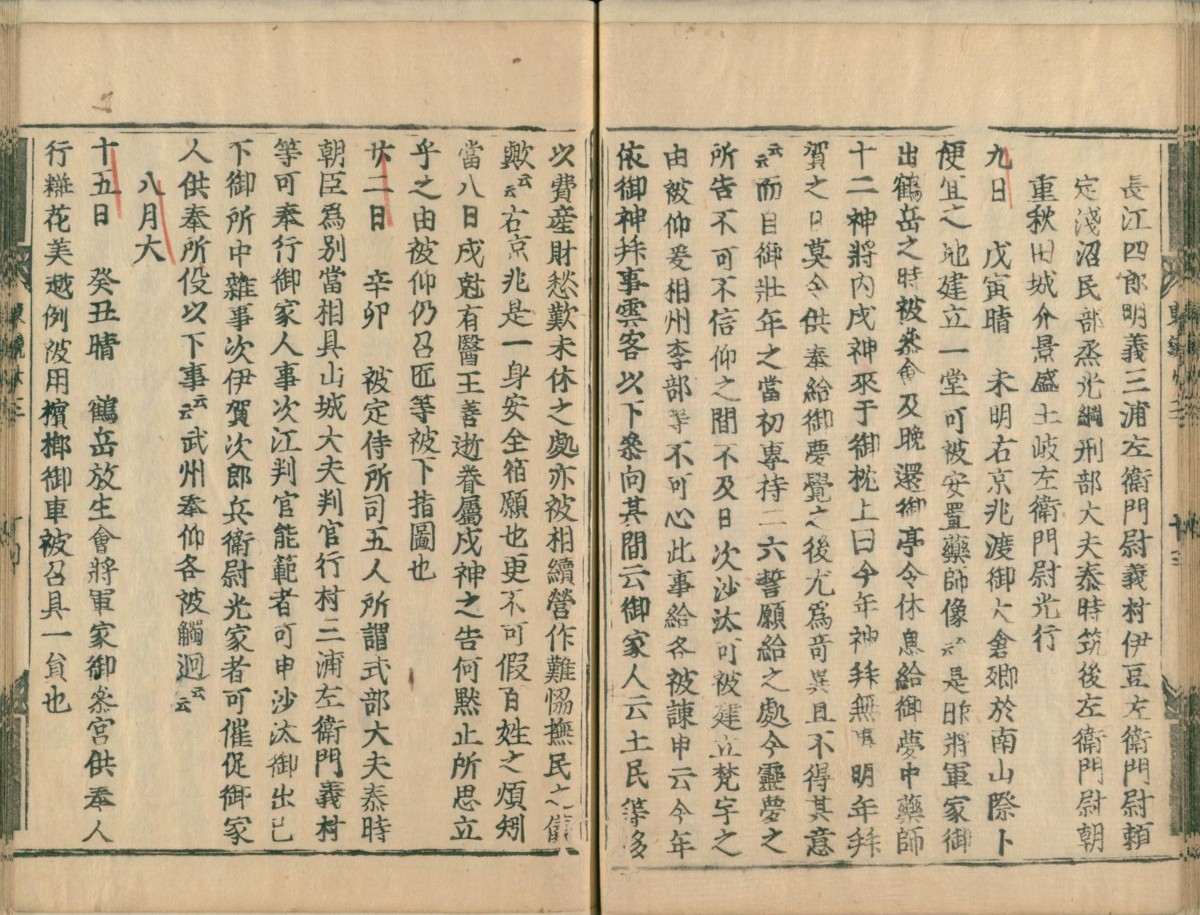 長江四郎明義三浦左衛門尉義村伊豆左衛門尉頼
定淺沼民部烝光綱刑部大夫泰時筑後左衛門尉朝
重秋田城介景盛土岐左衛門尉光行
九日　戊寅晴　未明右京兆渡御大倉郷於南山際卜
便宜之地建立一堂可被安置藥師像云云是昨將軍家御
出鶴岳之時被叅會及晩還御亭令休息給御夢中藥師
十二神將內戌神來于御枕上曰今年神拜無明年拜
賀之日莫令供奉給御夢覺之後尤爲竒異且不得其意
云云而自御壯年之當初專持二六誓願給之處今靈夢之
所告不可不信仰之間不及日次沙汰可被建立梵宇之
由被仰爰相州李部等不可心此事給各被諫申云今年
依御神拜事雲客以下叅向其間云御家人云土民等多
以費産財愁歎未休之處亦被相續營作難恊撫民之儀
歟云云右京兆是一身安全宿願也更不可假百姓之煩矧
當八日戌尅有醫王善逝眷屬戌神之告何默止所思立
乎之由被仰仍召匠等被下指圖也
廿二日　辛卯　被定侍所司五人所謂式部大夫泰時
朝臣爲別當相具山城大夫判官行村三浦左衛門義村
等可奉行御家人事次江判官能範者可申沙汰御出已
下御所中雜事次伊賀次郎兵衛尉光家者可催促御家
人供奉所役以下事云云武州奉仰各被觸廻云云
八月大
十五日　癸丑晴　鶴岳放生會將軍家御叅宮供奉人
行糚花美越例被用檳榔御車被召具一負也